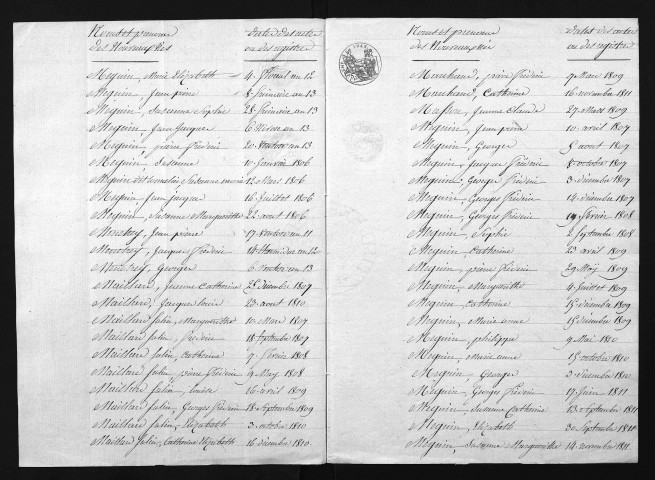 Noms et prénoms des Nouveaux nés
Dates des actes ou des registres
Mequin, Marie Elizabeth 4 floréal an 12
Mequin, Jean pierre 8 frimaire an 13
Mequin, Susanne Sophie 28 frimaire an 13
Mequin, Jean Jacques 6 Nivose an 13
Mequin, pierre frédéric 20 Ventose an 13
Mequin, Susanne 10 Janvier 1806
Mequin Susanne marie 12 Mars 1806
Mequin Jean jacques 16 Juillet 1806
Mequin, Susanne Margueritte 22 aout 1806
Jean pierre 17 Ventose an 11
Jacques frédéric 14 an 12
Georges 6 Ventose an 13
Maillard, Jeanne Catherine 25 Décembre 1807
Maillard, Jacques louis 23 aout 1810
Maillard Salin, Marguerithe 10 Mars 1807
Maillard Salin, frédéric 18 Septembre 1807
Maillard Salin, Catherine 9 février 1808
Maillard Salin, pierre frédéric 9 May 1808
Maillard Salin, louise 16 avril 1809
Maillard Salin, Georges frédéric 18 Septembre 1809
Maillard Salin, Elizabeth 3 octobre 1810
Maillard Salin, Catherine Elizabeth 16 décembre 1810
Noms et prénoms des Nouveaux nés
Dates des actes ou des registres
Marchand, pierre frédéric 9 Mars 1809
Marchand, Catherine 16 novembre 1811
Jeanne Claude 27 Mars 1809
Mequin, Jean pierre 10 avril 1807
Mequin, Georges 5 aout 1807
Mequin, Jacques frédéric 8 octobre 1807
Mequin, Georges frédéric 3 décembre 1807
Mequin, Georges frédéric 14 décembre 1807
Mequin, Georges frédéric 19 février 1808
Mequin, Sophie 2 Septembre 1808
Mequin, Catherine 23 avril 1809
Mequin, pierre frédéric 29 May 1809
Mequin, Marguerithe 4 Juillet 1809
Mequin, Catherine 15 décembre 1809
Mequin, Marie anne 15 décembre 1809
Mequin, philippe 9 Mai 1810
Mequin, Marie anne 15 octobre 1810
Mequin, Georges 3 décembre 1810
Mequin, Georges frédéric 17 Juin 1811
Mequin, Susanne Catherine 13 Septembre 1811
Mequin, Elizabeth 30 Septembre 1811
Mequin, Susanne Marguerithe 14 novembre 1811